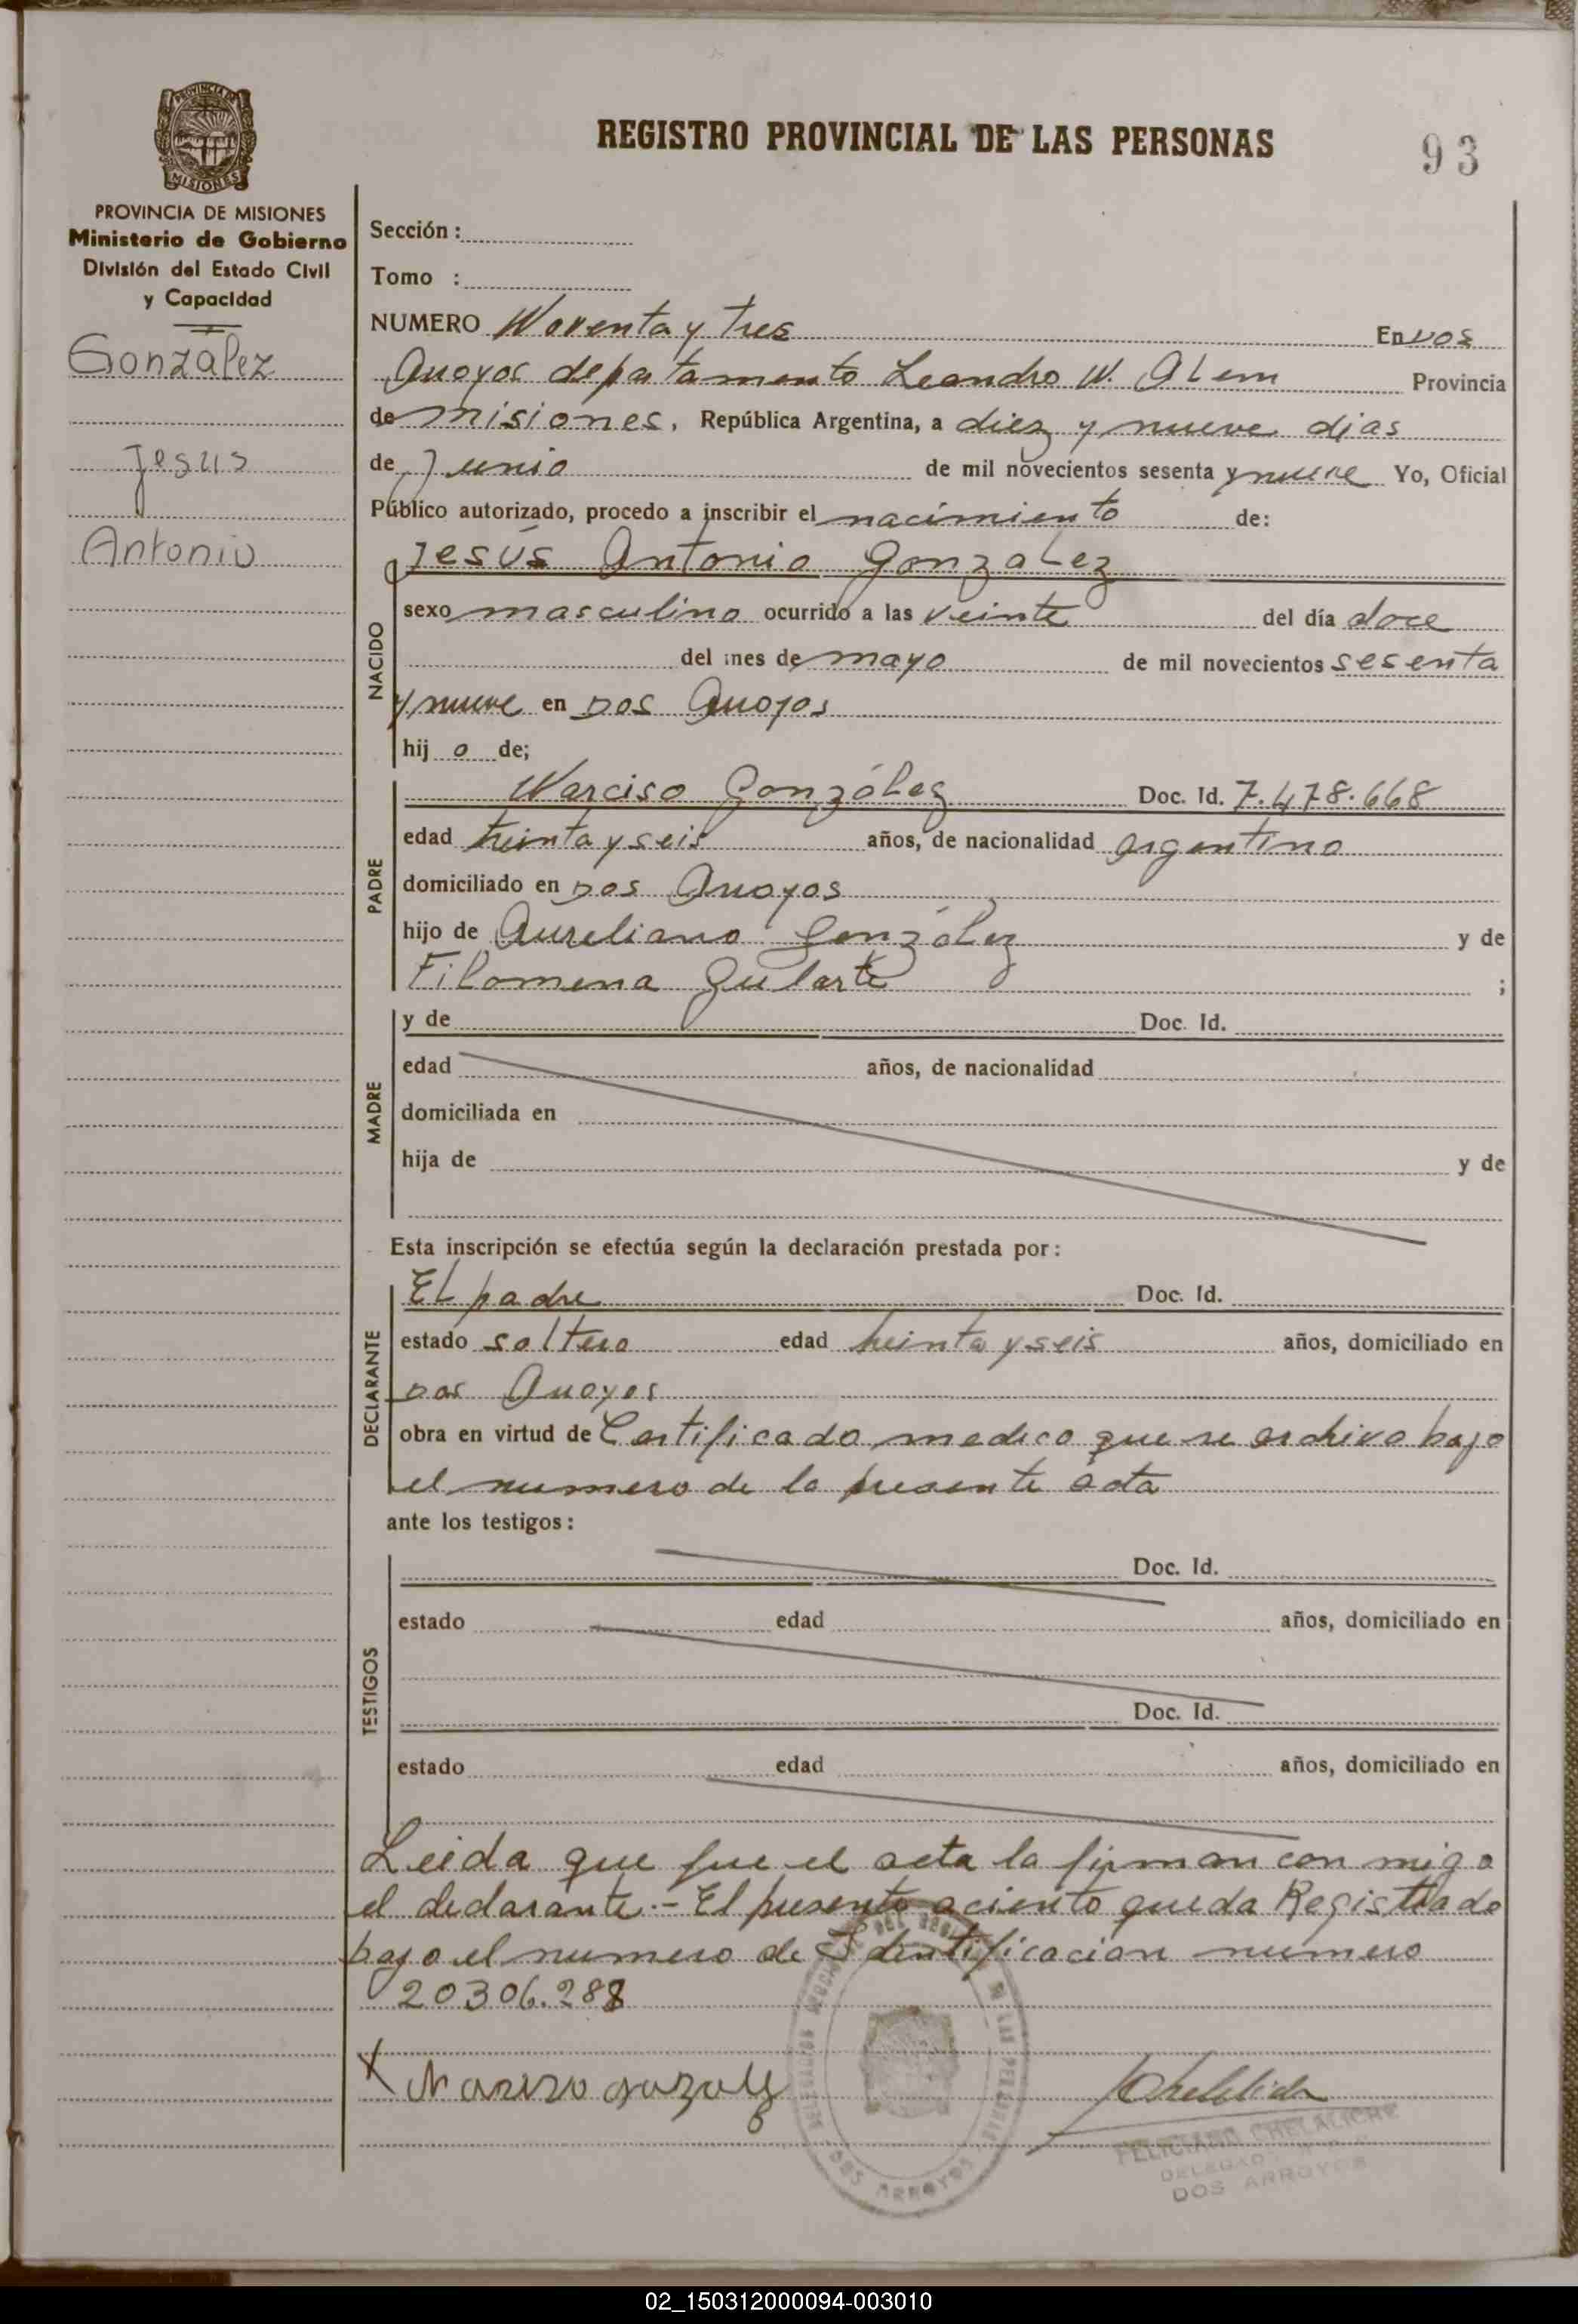 REGISTRO PROVINCIAL DE LAS PERSONAS
93
PROVINCIA DE
MISIONES
PROVINCIA DE MISIONES
Ministerio de Gobierno
División del Estado Civil
y Capacidad
González
Jesus
Antonio
Sección :
Tomo :
NUMERO Noventa y tres En DOS
Arroyos departamento Leandro N. ALem Provincia
de misiones, República Argentina, a diez y nueve dias
de Junio de mil novecientos sesenta y nueve Yo, Oficial
Público autorizado, procedo a inscribir el nacimiento de:
NACIDO
Jesús Antonio GonzaLez
sexo masculino ocurrido a las veinte del día doce
del mes de mayo de mil novecientos sesenta
y nueve en DOS Arroyos
hij o de;
PADRE
Narciso GonzáLez Doc. Id. 7.478.668
edad treinta y seis años, de nacionalidad argentino
domiciliado en DOS Arroyos
hijo de Aureliano GonzáLez y de
Filomena Gularte ;
MADRE
y de Doc. Id.
edad años, de nacionalidad
domiciliada en
hija de y de
Esta inscripción se efectúa según la declaración prestada por:
DECLARANTE
EL padre Doc. Id.
estado soltero edad treinta y seis años, domiciliado en
Dos Arroyos
obra en virtud de Certificado medico que se archiva bajo
el numero de la presente acta
ante los testigos:
TESTIGOS
Doc. Id.
estado edad años, domiciliado en
Doc. Id.
estado edad años, domiciliado en
Leida que fue el acta la firman con migo
el declarante.- El presente aciento queda Registrado
bajo el numero de Identificacion numero
20306.288
X
DOS ARROYOS
FELICIANO CHELALICHE
DELEGADO
DOS ARROYOS
02_150312000094-003010